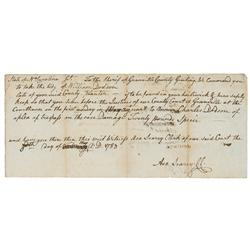 State of No Carolina Sct. To the Sheriff of Granville County Greeting We Command you
to take the body of William Dodson
late of your said County Planter if to be found in your bailiwick & him safely
keep so that you have him before the Justices of our County Court of Granville at the
Courthouse on the first monday of next to answer Charles
of a plea of trespass on the case Damage Twenty Pounds Specie
and have you then there this writ Witness Asa Searcy Clerk of our said Court the
day of A.D. 1783
Asa Searcy CC